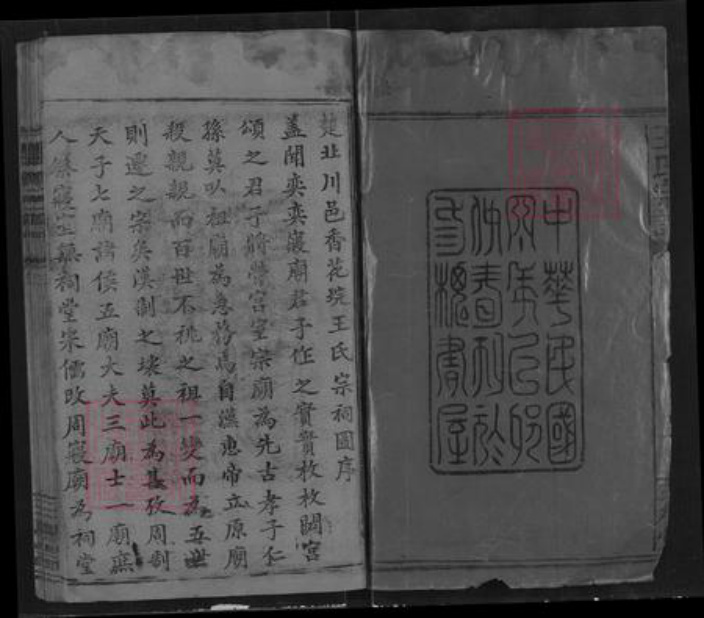 中華民國
四年乙卯
仲春刊於
三槐書屋
楚北川邑香花垸王氏宗祠圖序
蓋聞奕奕寢廟君子作之實實枚枚閟宮
頌之君子將營宮室宗廟為先古孝子仁
孫莫以祖廟為急務焉自漢惠帝立原廟
殺親親而百世不祧之祖一變而為五世
則遷之宗矣漢制之壊莫此為甚攷周制
天子七廟諸侯五廟大夫三廟士一廟庶
人祭寢室無祠堂宋儒改周寢廟為祠堂